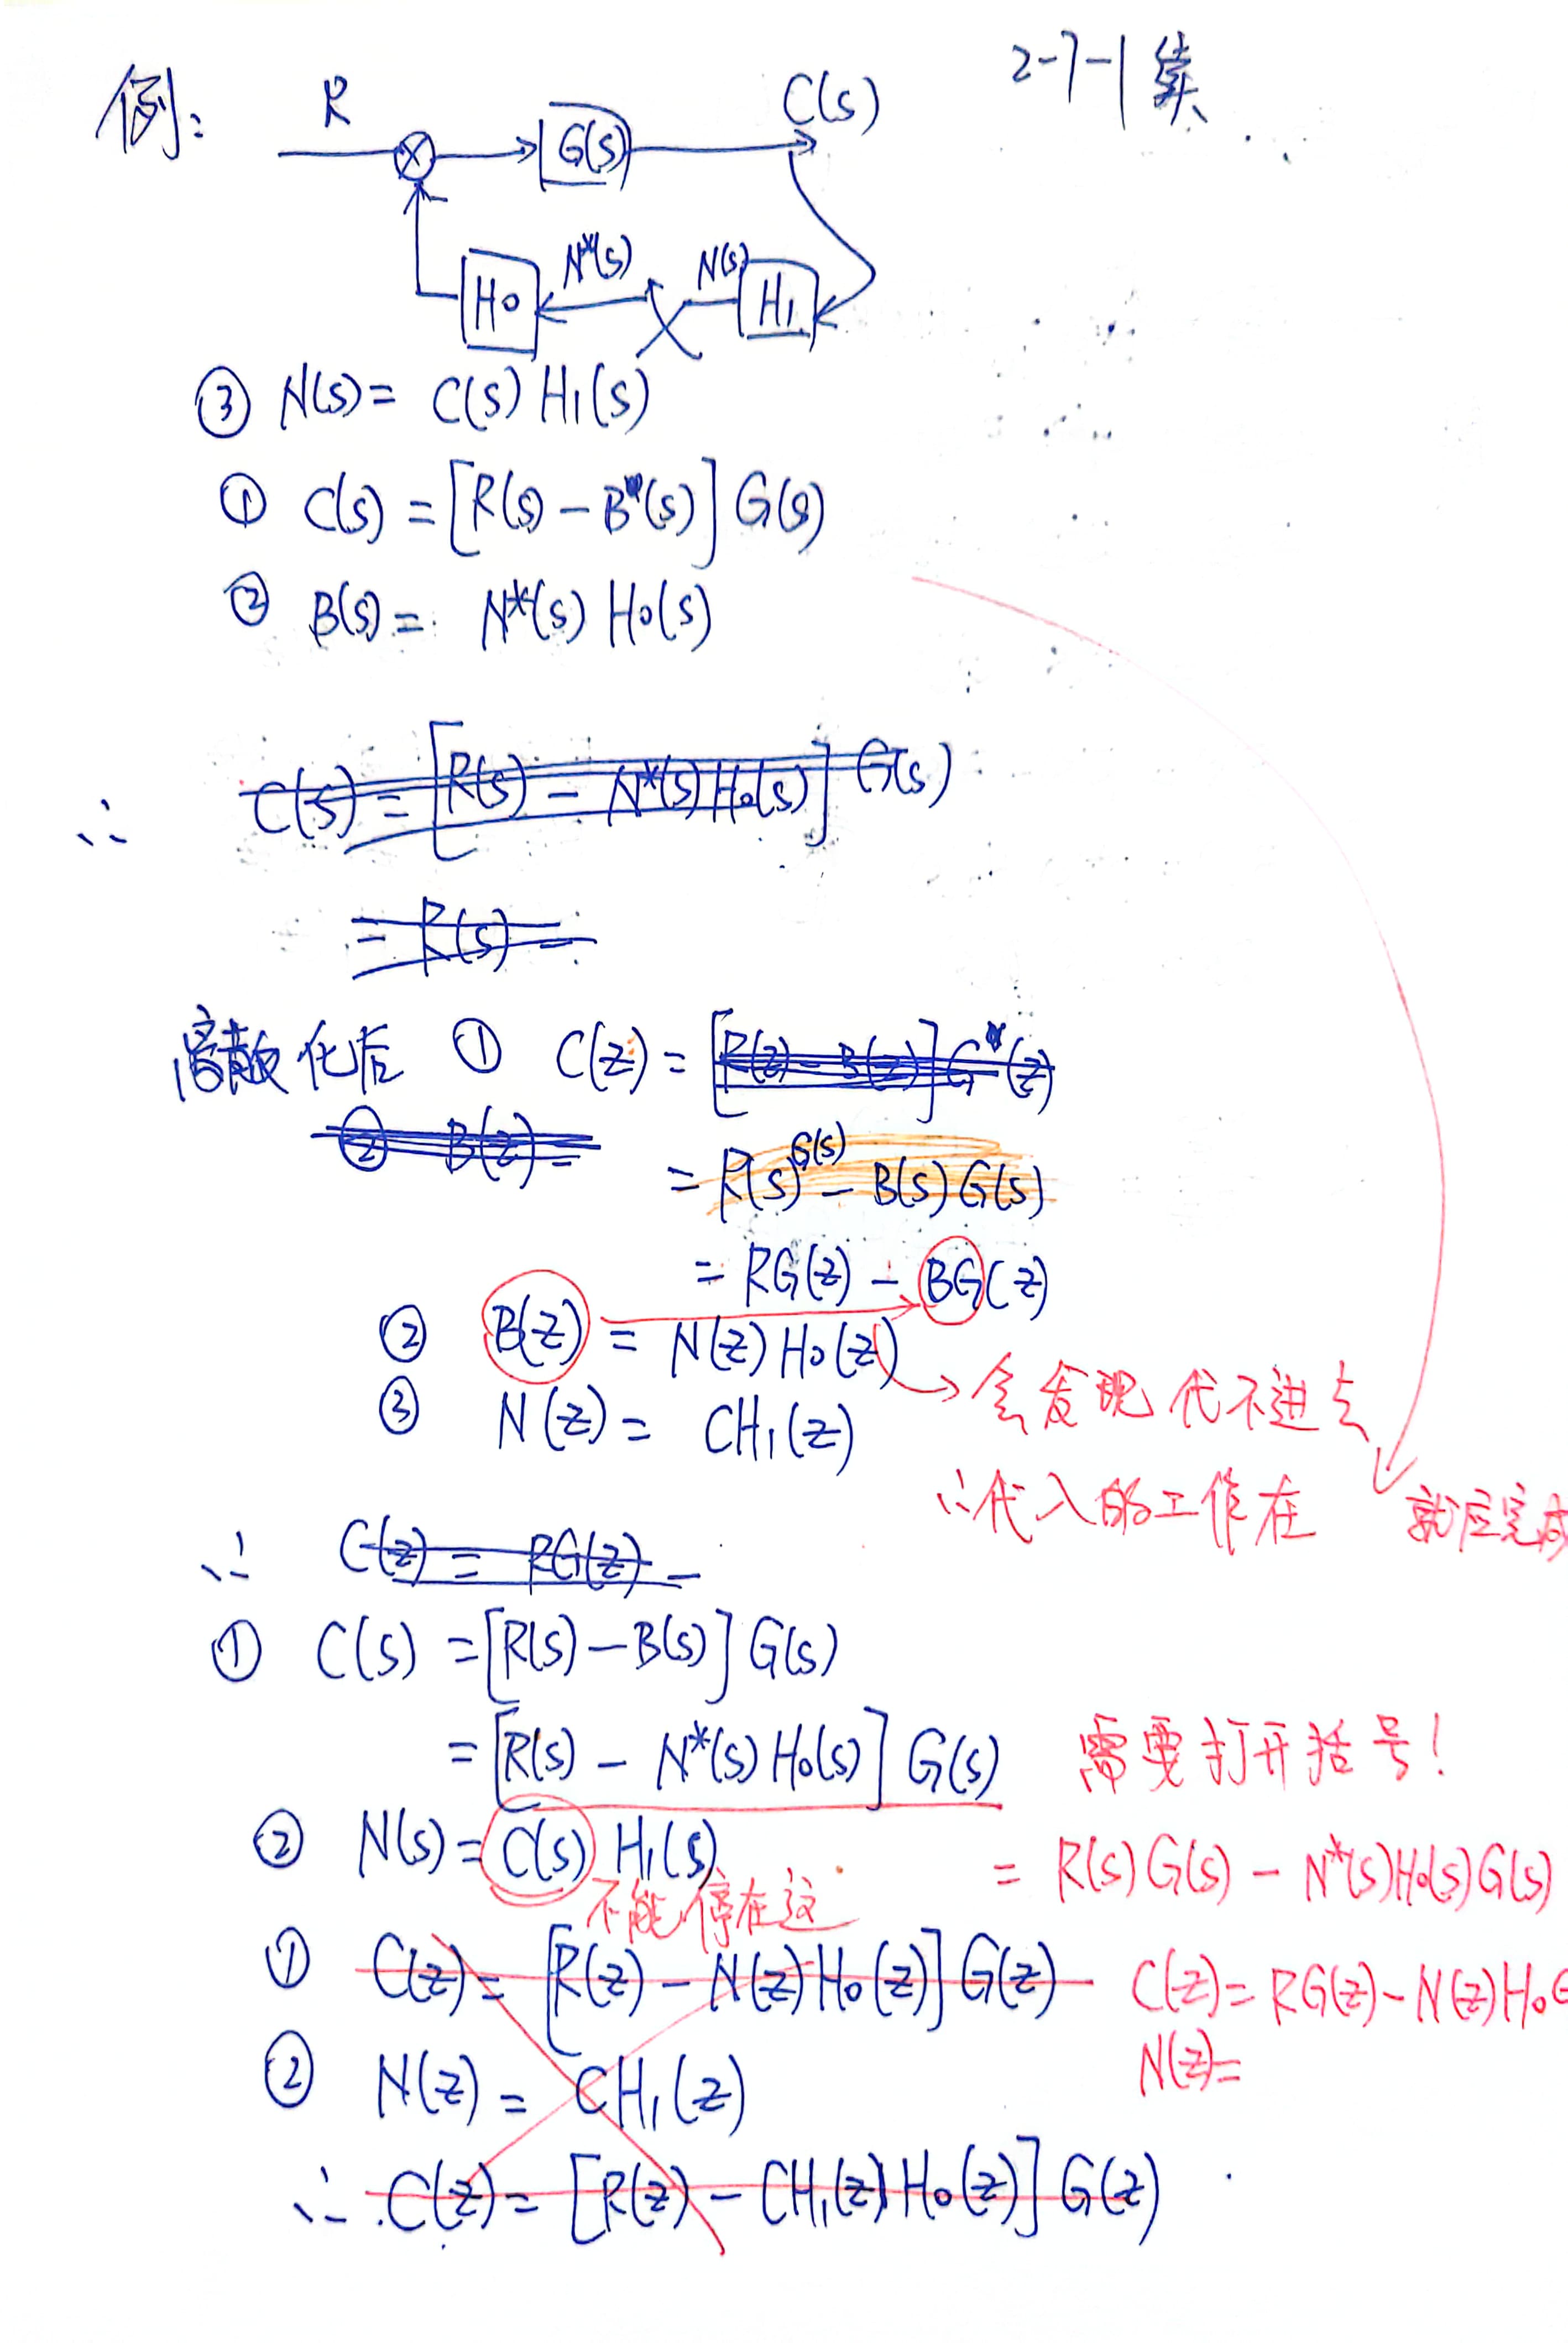 2-7-1 续
例: R G(s) C(s)
H0 N*(s) N(s) H1
③ N(s) = C(s) H1(s)
① C(s) = [R(s) - B*(s)] G(s)
② B(s) = N*(s) H0(s)
∴ C(s) = [R(s) - N*(s) H0(s)] G(s)
= R(s) -
离散化后 ① C(z) = [R(z) - B(z)] G*(z)
② B(z) =
= R(s)G(s) - B(s)G(s)
= RG(z) - BG(z)
② B(z) = N(z) H0(z) → 会发现代不进去
③ N(z) = CH1(z)
∴ 代入的工作在 就应完成
∴ C(z) = RG(z) -
① C(s) = [R(s) - B(s)] G(s)
= [R(s) - N*(s) H0(s)] G(s) 需要打开括号!
② N(s) = C(s) H1(s) = R(s)G(s) - N*(s)H0(s)G(s)
不能停在这
① C(z) = [R(z) - N(z) H0(z)] G(z) C(z) = RG(z) - N(z)H0G
N(z) =
② N(z) = CH1(z)
∴ C(z) = [R(z) - CH1(z) H0(z)] G(z)